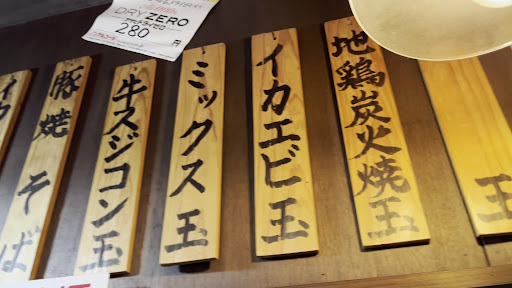 DRY ZERO
アサヒドライゼロ
280 円
豚焼そば
牛スジコン玉
ミックス玉
イカエビ玉
地鶏炭火焼玉
玉